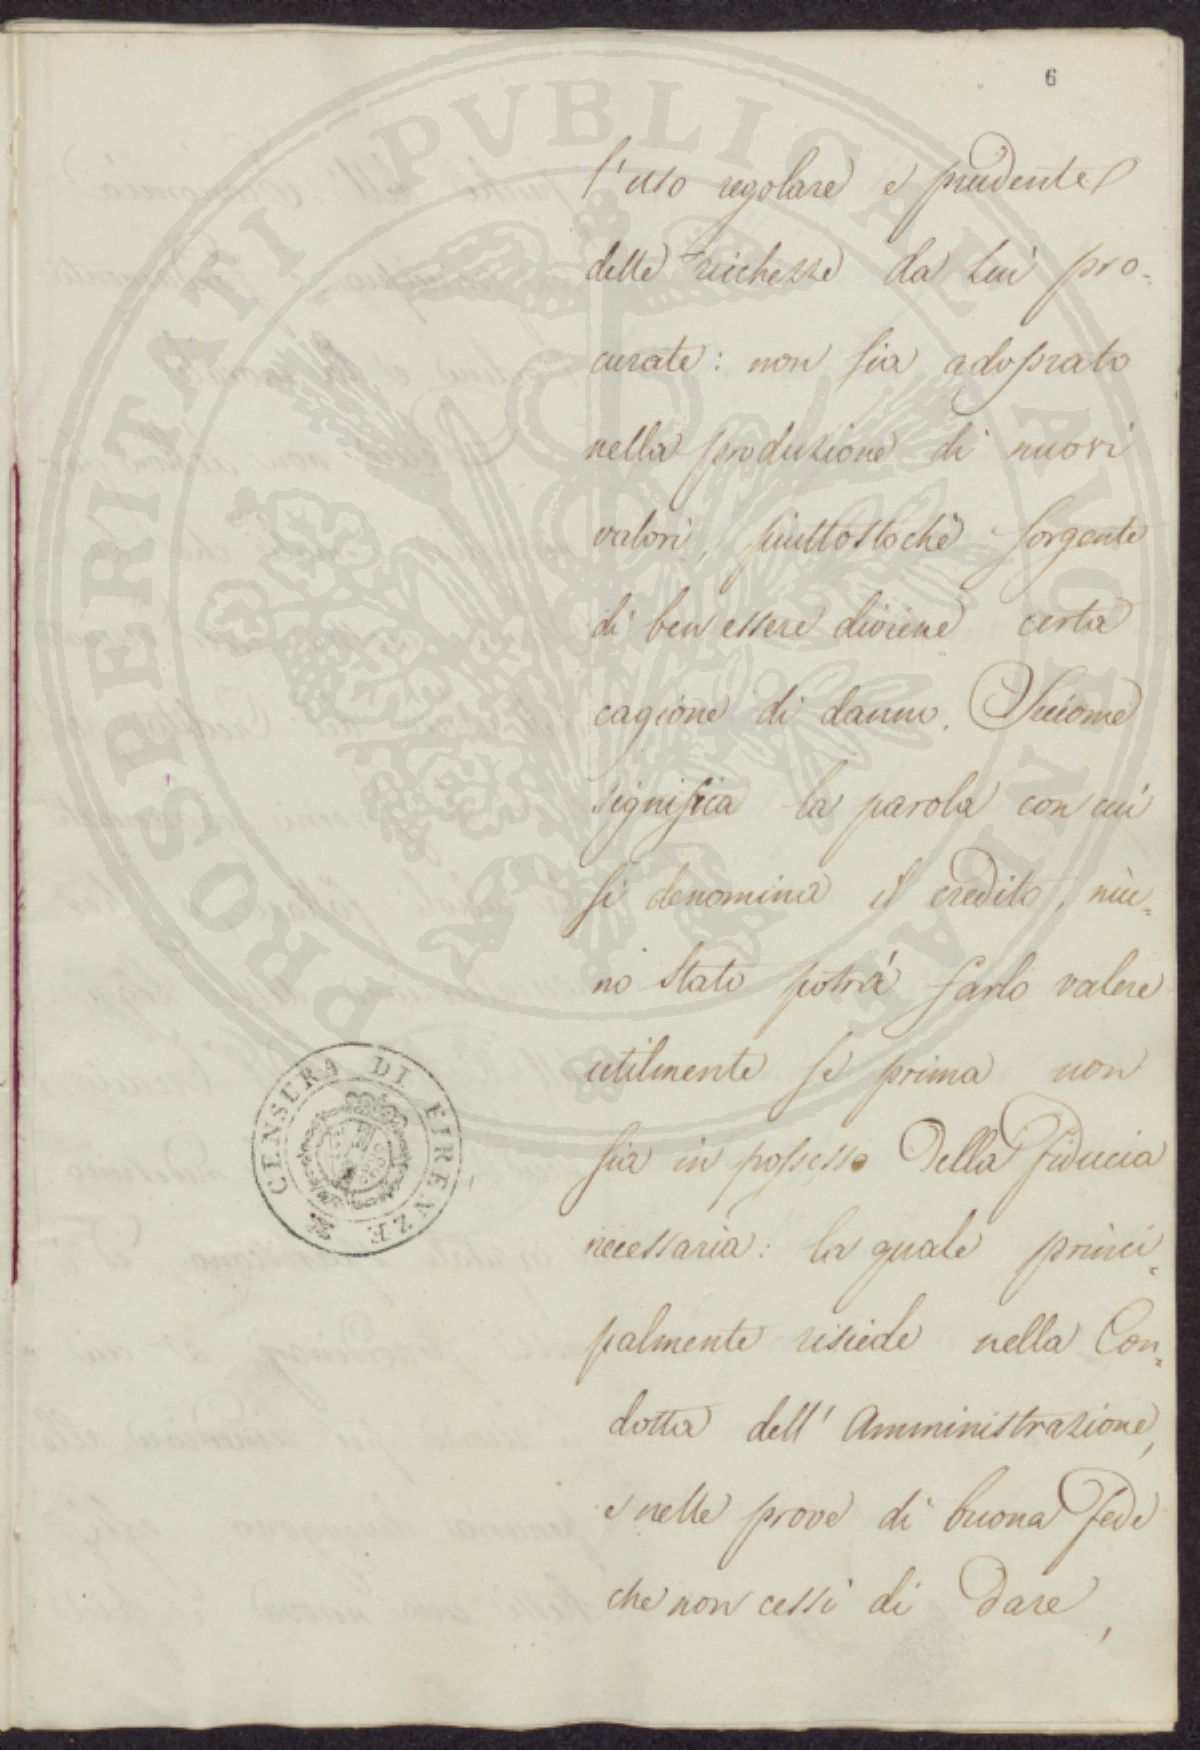 6
l'uso regolare e prudente
delle ricchezze da lui pro=
curate: non sia adoprato
nella produzione di nuovi
valori, piuttostochè sorgente
di ben essere diviene certa
cagione di danno. Siccome
significa la parola con cui
si denomina il credito, niu=
no Stato potrà farlo valere
utilmente se prima non
sia in possesso della fiducia
necessaria: la quale princi=
palmente risiede nella Con=
dotta dell'Amministrazione,
e nelle prove di buona fede
che non cessi di dare,
CENSURA DI FIRENZE
PROSPERITATI PVBLICAE AVGENDAE